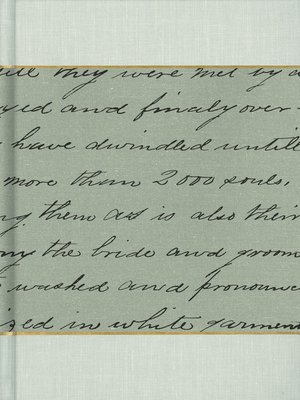 till they were met by a
yed and finaly over-
have dwindled untill
more than 2000 souls,
ng them as is also their
ny the bride and groom
washed and pronounce
ized in white garmen